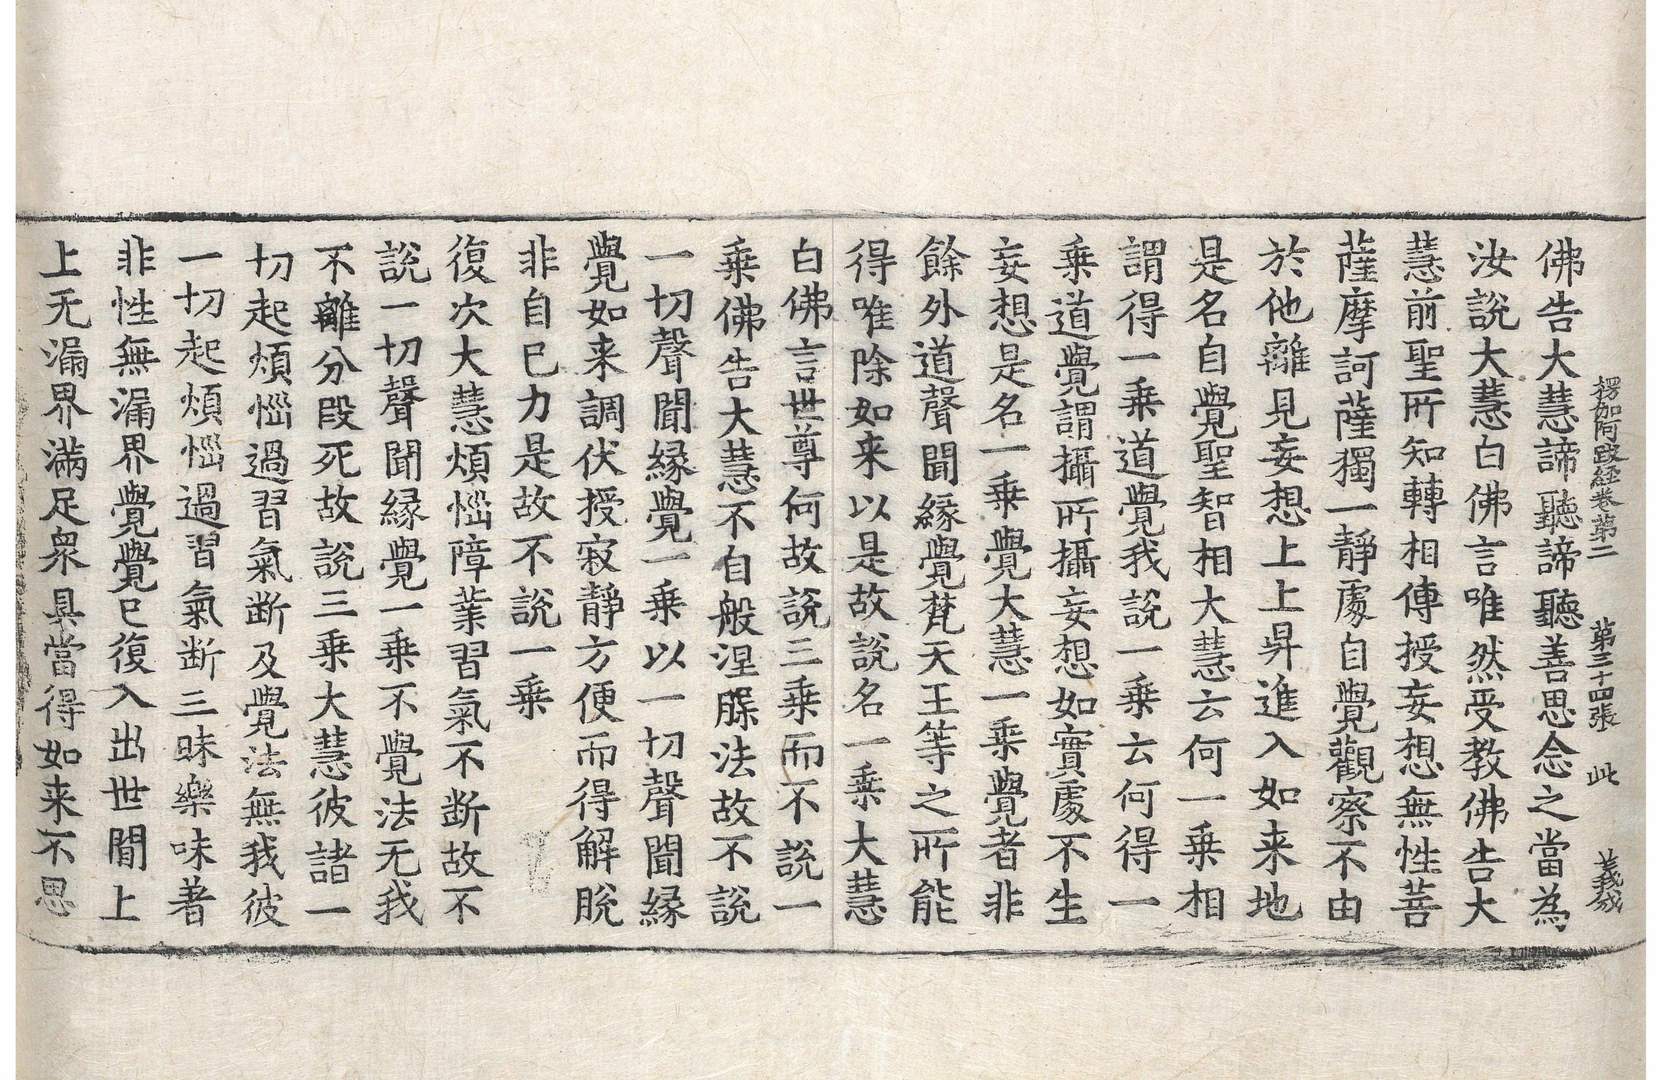 楞伽阿跋經卷第二 第三十四張 此
佛告大慧諦聽諦聽善思念之當為
汝說大慧白佛言唯然受教佛告大
慧前聖所知轉相傳授妄想無性菩
薩摩訶薩獨一靜處自覺觀察不由
於他離見妄想上上昇進入如来地
是名自覺聖智相大慧云何一乗相
謂得一乗道覺我說一乗云何得一
乗道覺謂攝所攝妄想如實處不生
妄想是名一乗覺大慧一乗覺者非
餘外道聲聞緣覺梵天王等之所能
得唯除如来以是故說名一乗大慧
白佛言世尊何故說三乗而不說一
乗佛告大慧不自般涅槃法故不說
一切聲聞緣覺一乗以一切聲聞緣
覺如来調伏授寂靜方便而得解脫
非自己力是故不說一乗
復次大慧煩惱障業習氣不断故不
說一切聲聞緣覺一乗不覺法无我
不離分段死故說三乗大慧彼諸一
切起煩惱過習氣断及覺法無我彼
一切起煩惱過習氣断三昧樂味著
非性無漏界覺覺已復入出世間上
上无漏界滿足衆具當得如来不思